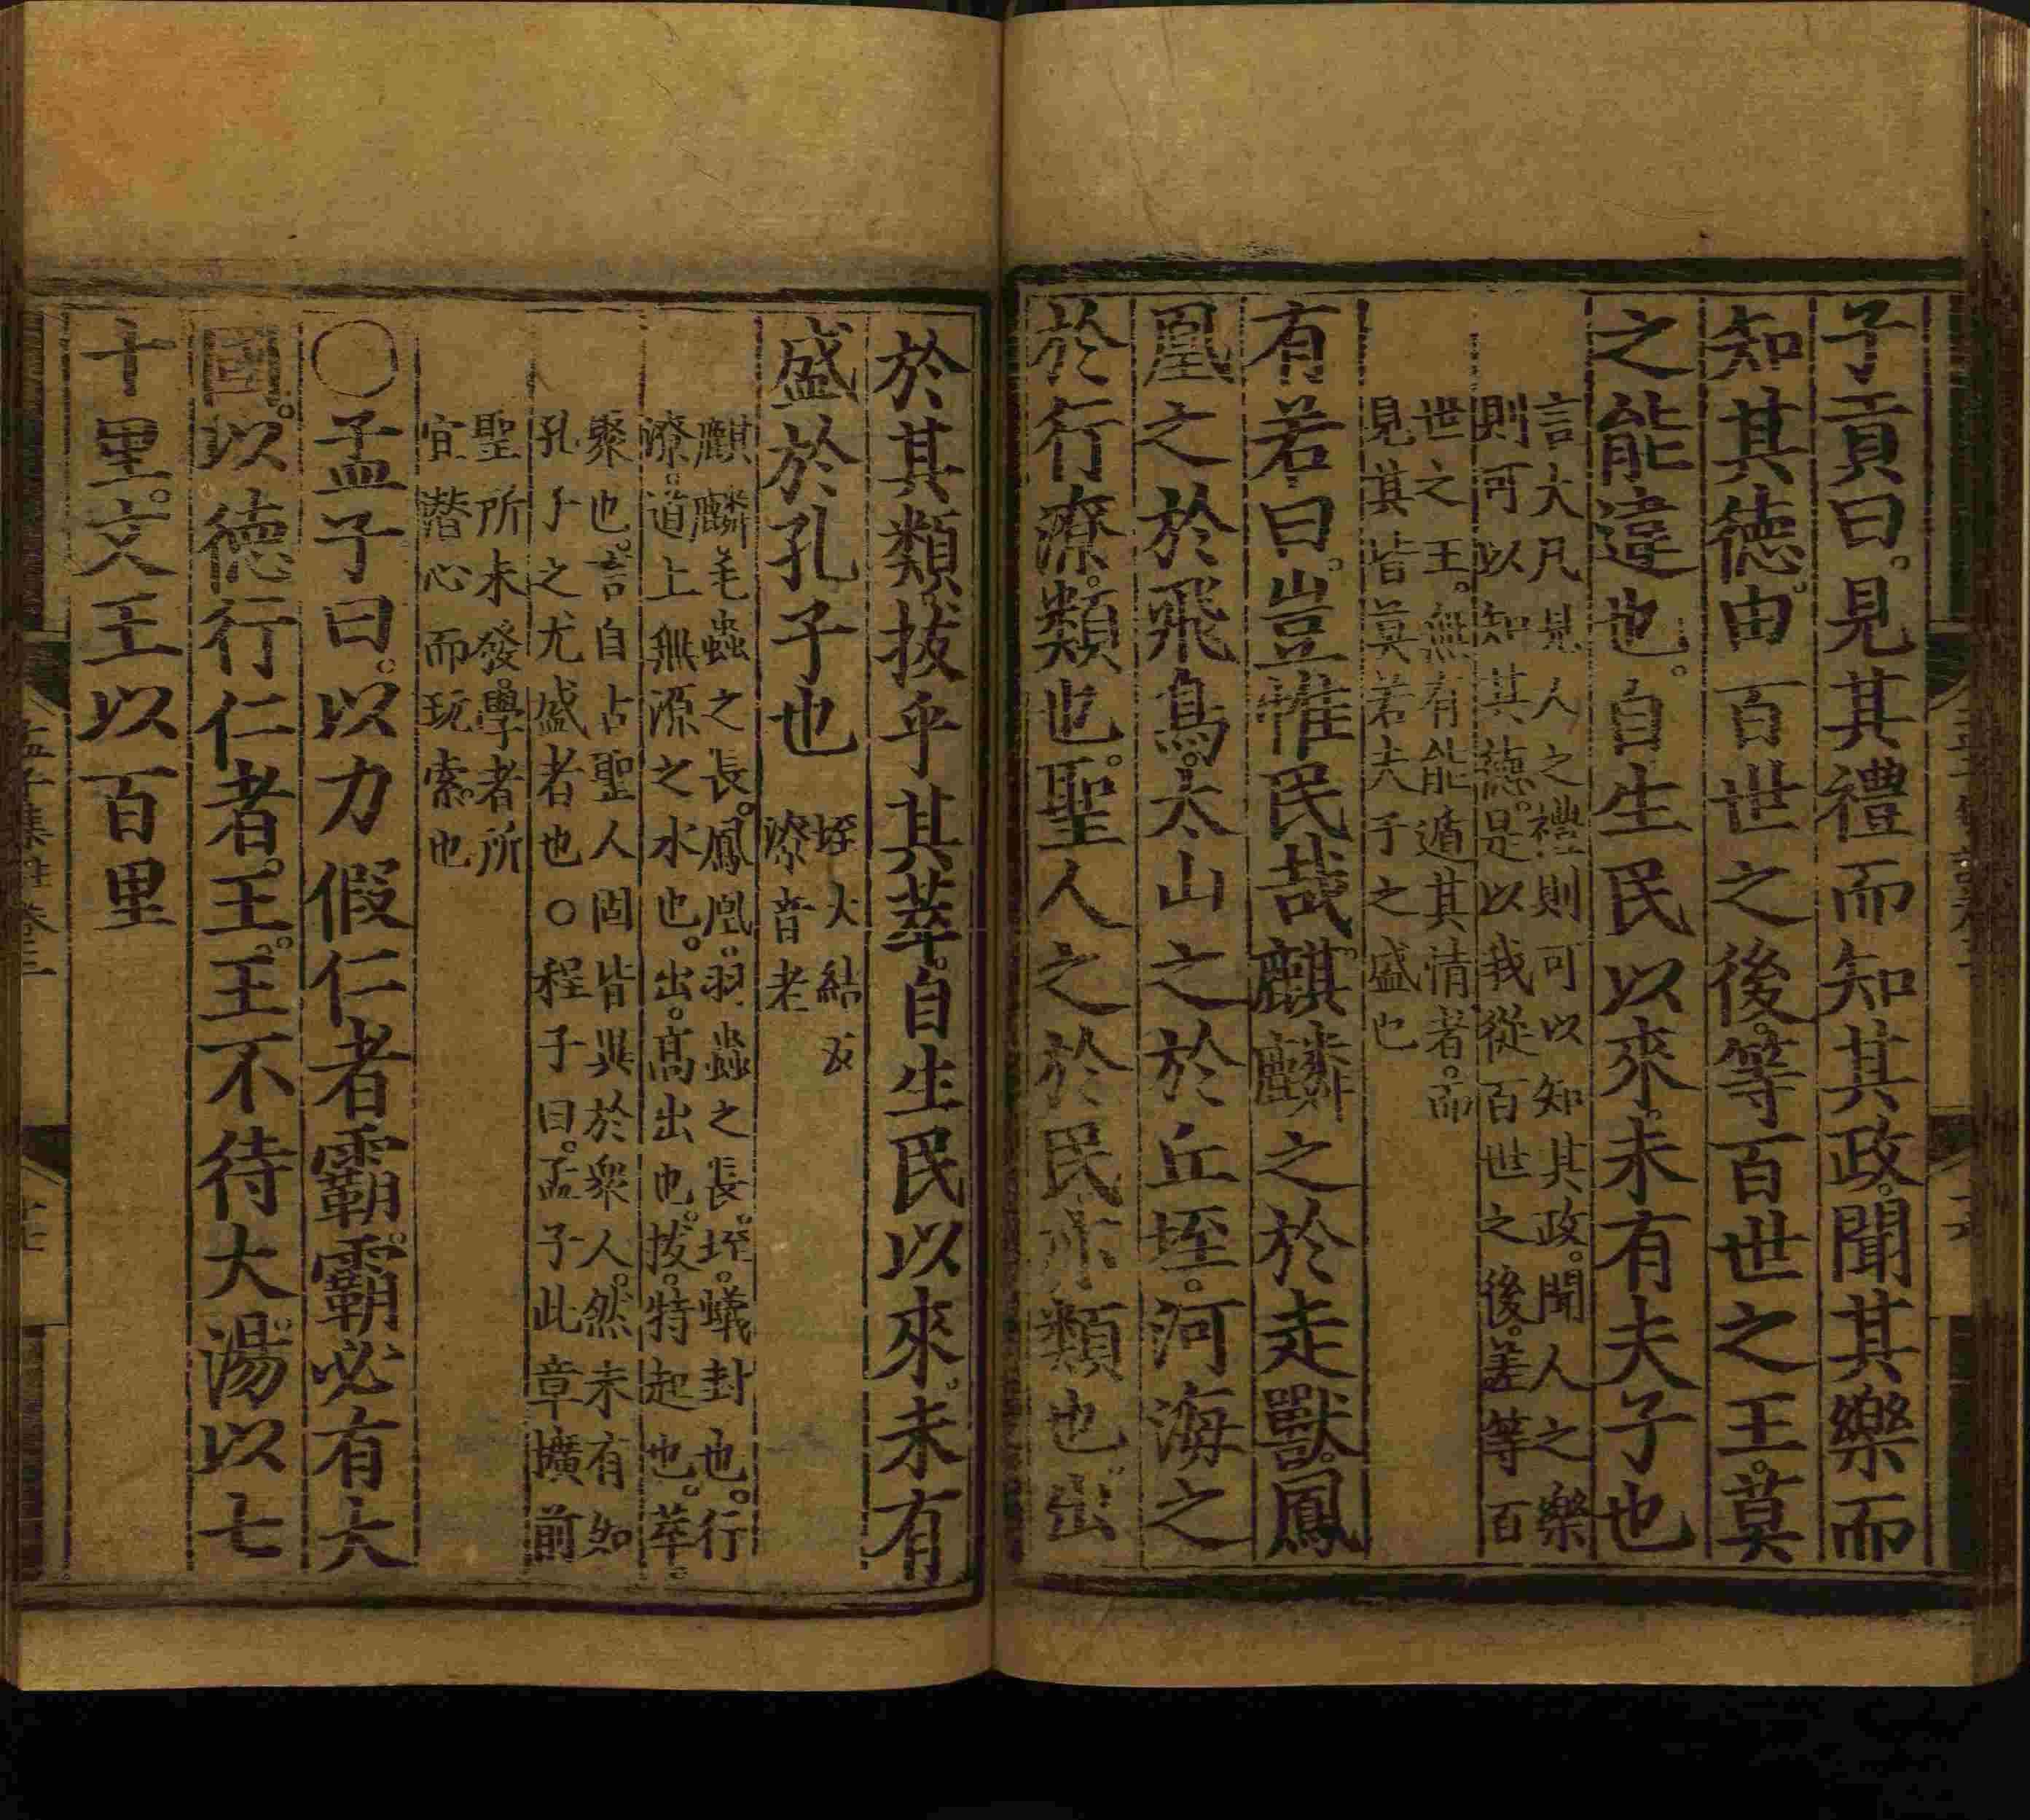 子貢曰。見其禮而知其政。聞其樂而
知其德。由百世之後。等百世之王。莫
之能違也。自生民以來。未有夫子也
言大凡見人之禮則可以知其政。聞人之樂
則可以知其德。是以我從百世之後。差等百
世之王。無有能遁其情者。而
見其皆莫若夫子之盛也
有若曰。豈惟民哉。麒麟之於走獸。鳳
凰之於飛鳥。太山之於丘垤。河海之
於行潦。類也。聖人之於民亦類也。出
於其類。拔乎其萃。自生民以來。未有
盛於孔子也
垤大結反
潦音老
麒麟毛蟲之長。鳳凰。羽蟲之長。垤。蟻封也。行
潦。道上無源之水也。出。高出也。拔。特起也。萃。
聚也。言自古聖人固皆異於衆人。然未有如
孔子之尤盛者也○程子曰。孟子此章擴前
聖所未發。學者所
宜潛心而玩索也
○孟子曰。以力假仁者霸。霸必有大
國。以德行仁者。王。王不待大。湯以七
十里。文王以百里
孟子集註卷三